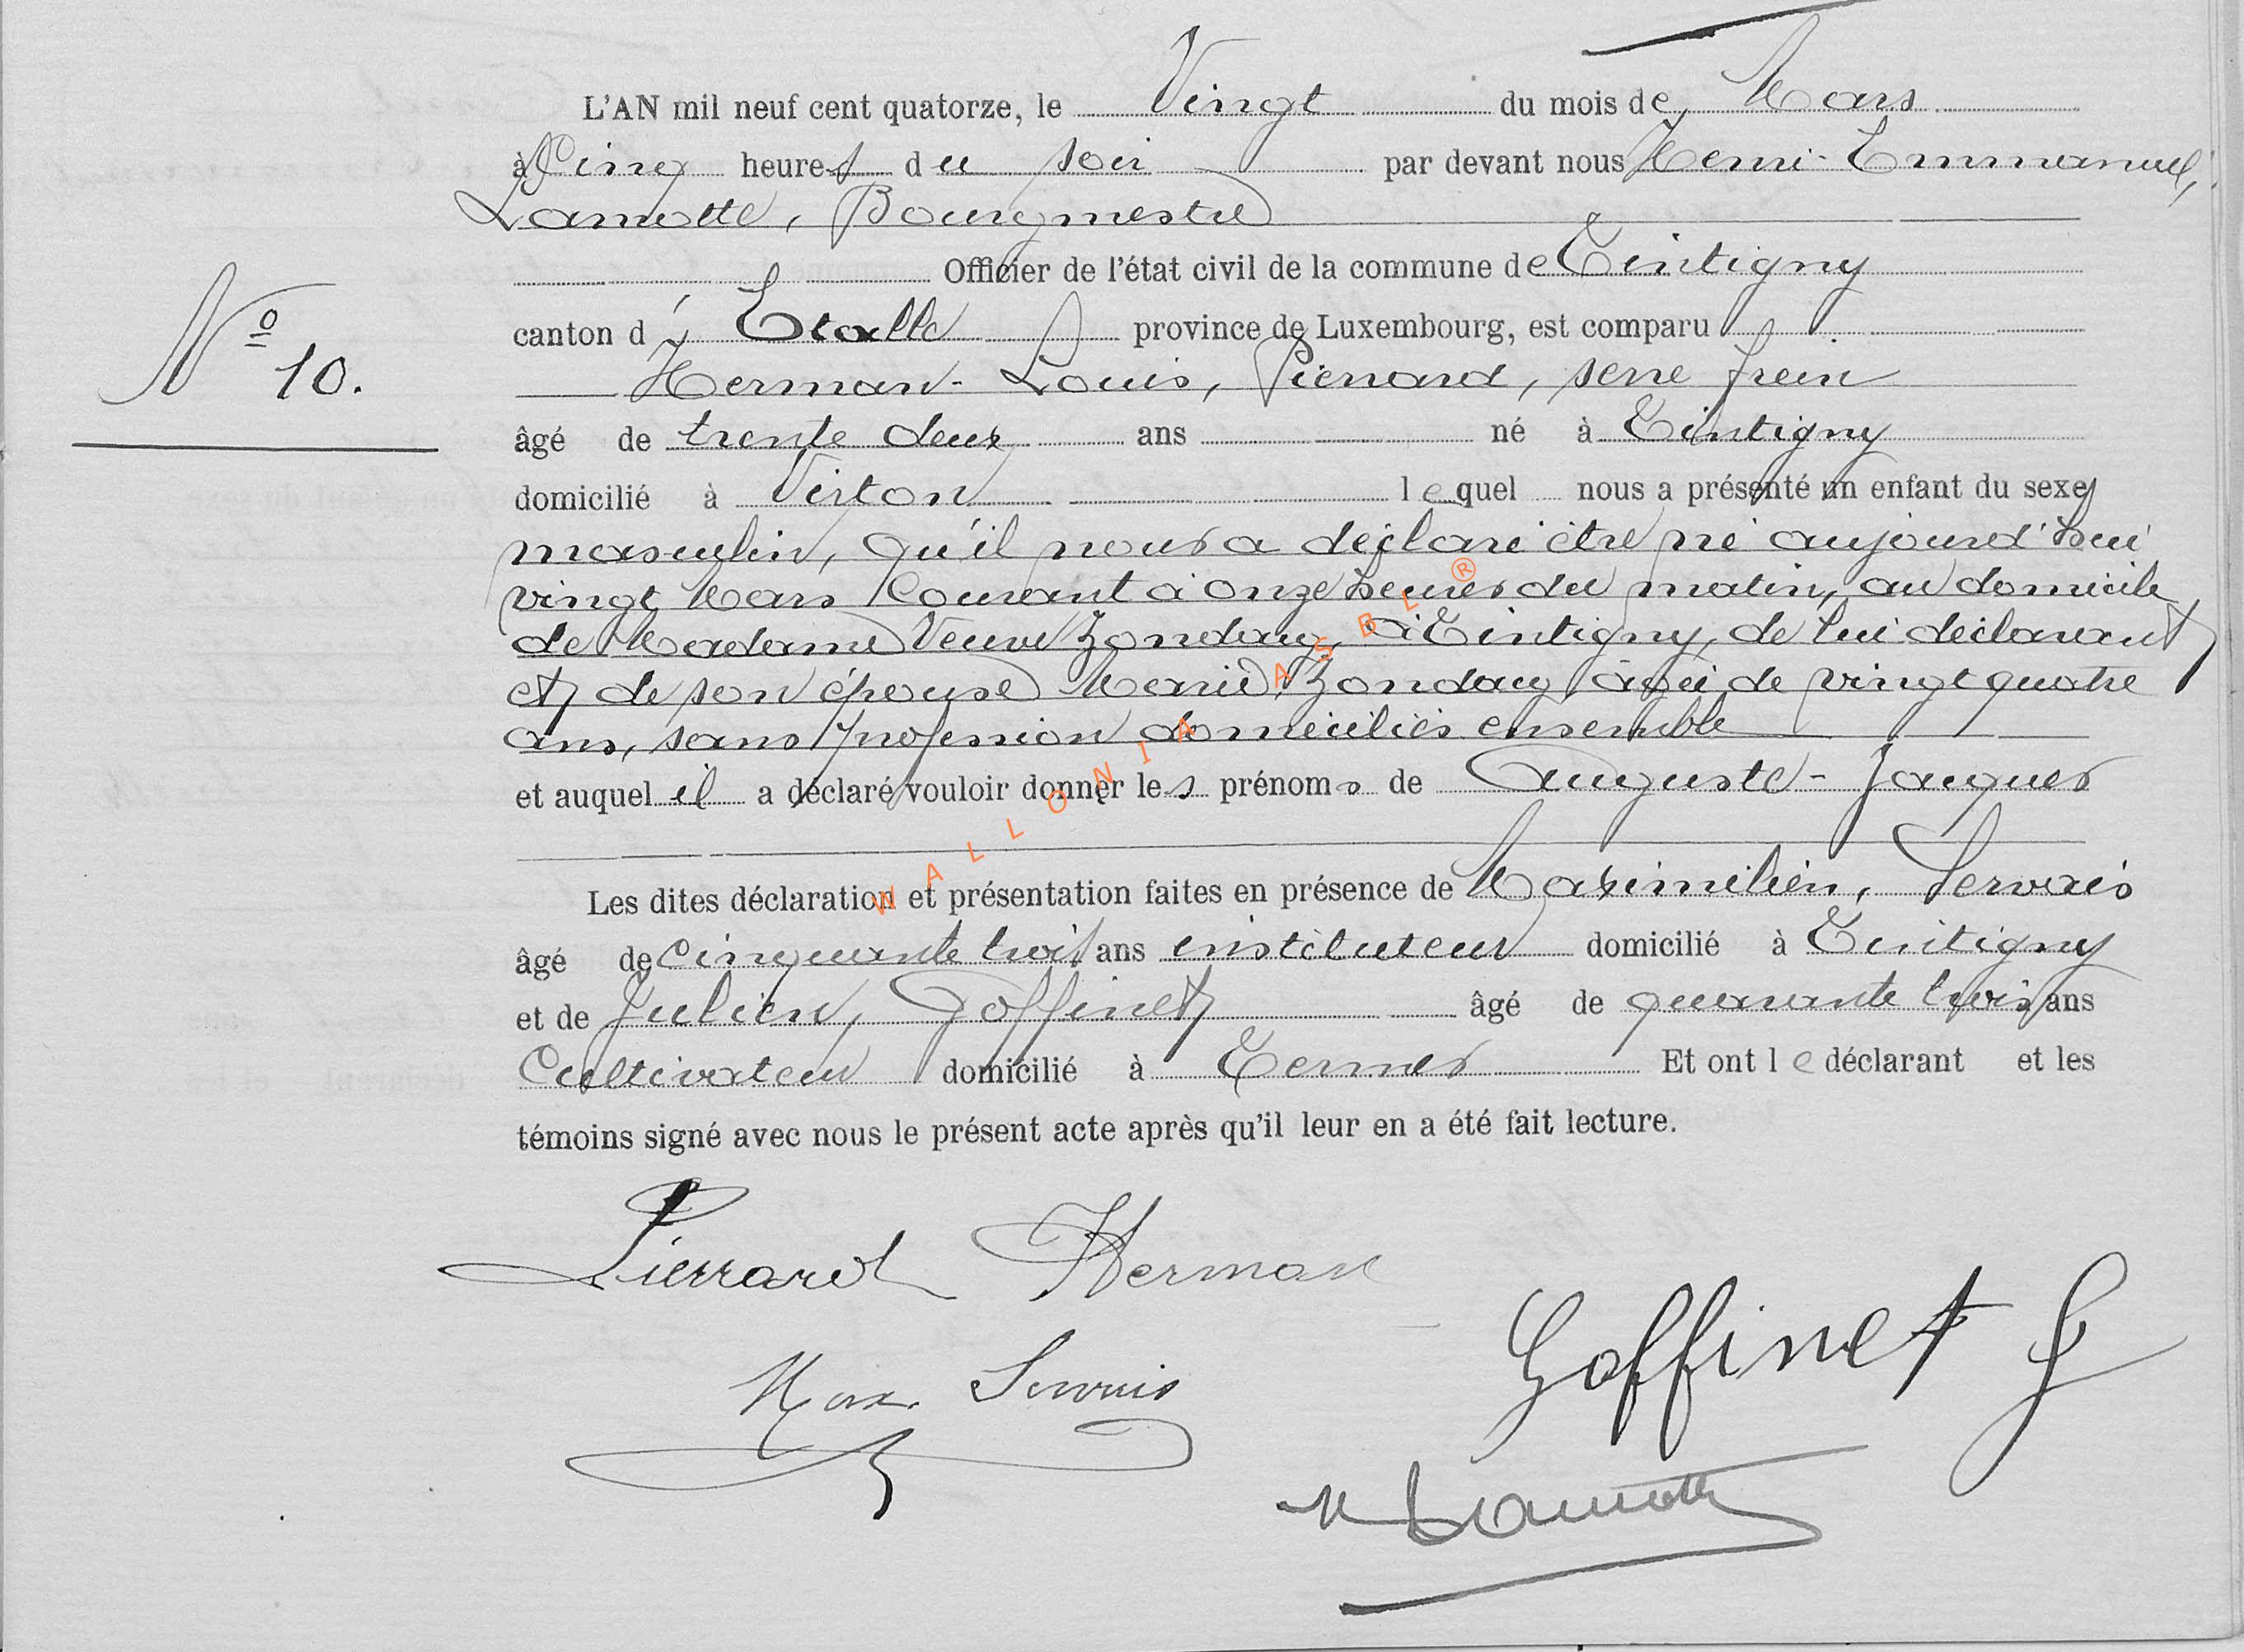 L'AN mil neuf cent quatorze, le Vingt du mois de Mars
à Cinq heures du soir par devant nous Henri-Emmanuel,
Lamotte, Bourgmestre
Officier de l'état civil de la commune de Tintigny
canton d'Etalle province de Luxembourg, est comparu
N° 10.
Herman-Louis, Pierrard, serre frein
âgé de trente deux ans né à Tintigny
domicilié à Virton lequel nous a présenté un enfant du sexe
masculin, qu'il nous a déclaré être né aujourd'hui
vingt Mars Courant à onze heures du matin, au domicile
de Madame Veuve Zondacq, à Tintigny, de lui déclarant
et de son épouse Marie Zondacq âgée de vingt quatre
ans, sans profession domiciliés ensemble
et auquel il a déclaré vouloir donner les prénoms de Auguste-Jacques
Les dites déclaration et présentation faites en présence de Maximilien, Servais
âgé de Cinquante trois ans instituteur domicilié à Tintigny
et de Julien, Goffinet âgé de quarante trois ans
Cultivateur domicilié à Termes Et ont le déclarant et les
témoins signé avec nous le présent acte après qu'il leur en a été fait lecture.
Pierrard Herman
Goffinet J
Max. Servais
H Lamotte
WALLONIA ASBL ®